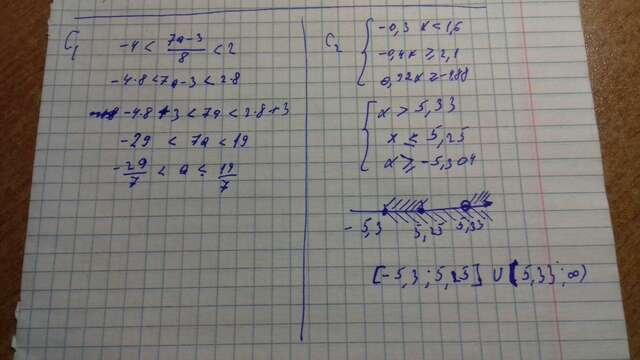 C1
-4 < (7a-3)/8 < 2
-4·8 < 7a-3 < 2·8
-4·8+3 < 7a < 2·8+3
-29 < 7a < 19
-29/7 < a < 19/7
C2
-0,3 x < 1,6
-0,4x ≥ 2,1
x > 5,33
x ≤ 5,25
x ≥ -5,304
-5,3 5,25 5,33
[-5,3 ; 5,25] ∪ (5,33 ; ∞)